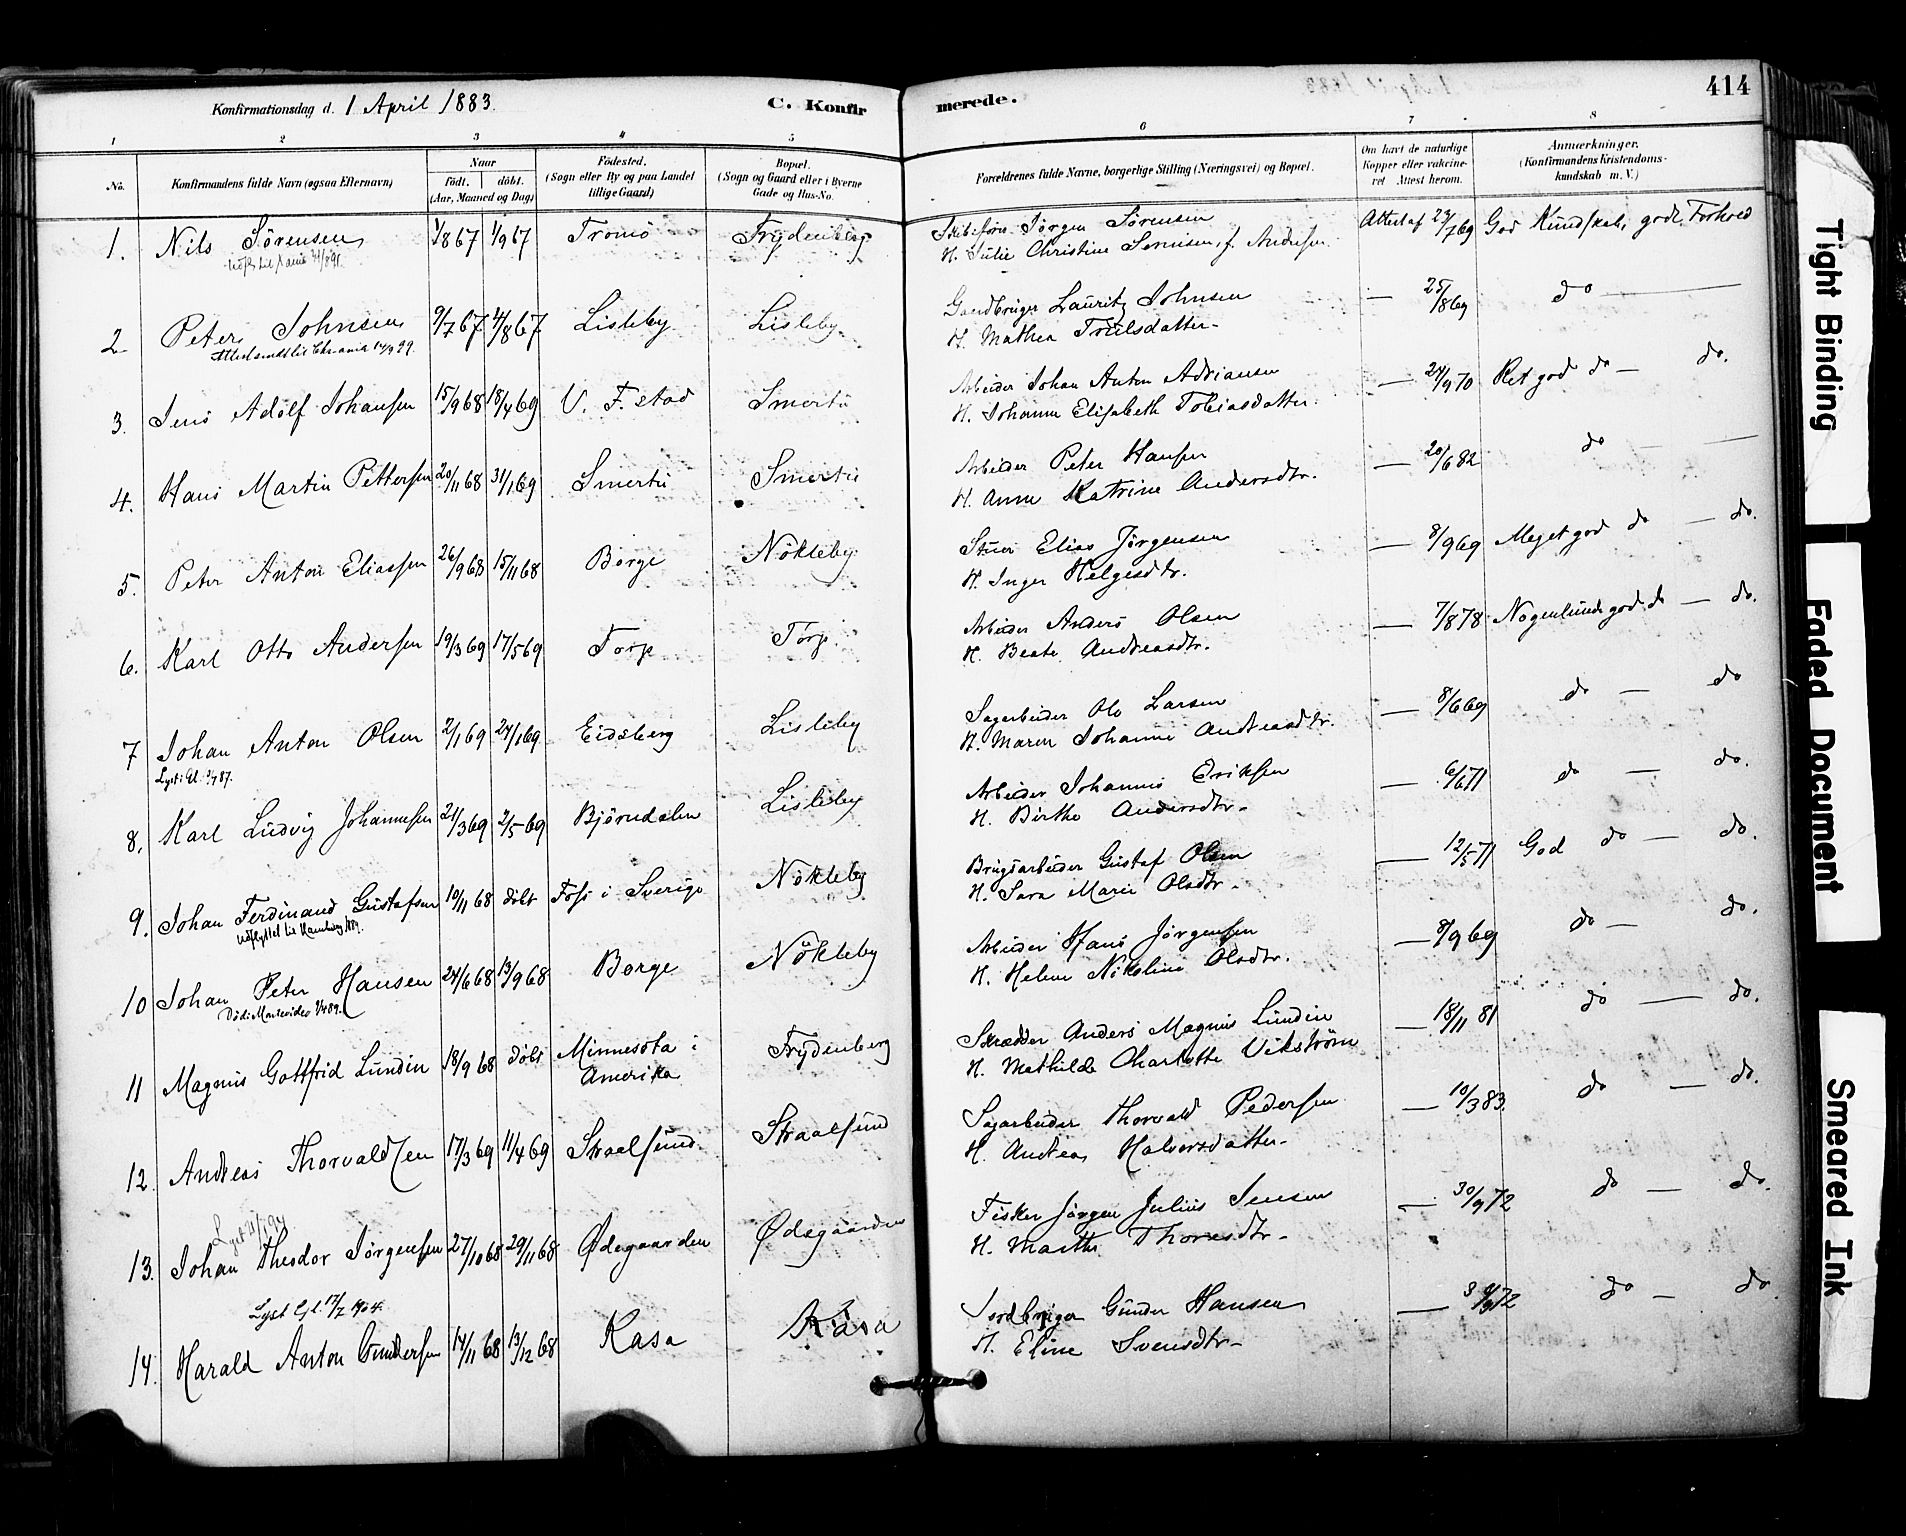 414
Konfirmationsdag d. 1 April 1883.
C. Konfirmerede.
1 2 3 4 5 6 7 8
No.
Konfirmandens fulde Navn (ogsaa Efternavn)
Naar
født. døbt.
(Aar, Maaned og Dag)
Fødested.
(Sogn eller By og paa Landet
tillige Gaard)
Bopæl.
(Sogn og Gaard eller i Byerne
Gade og Hus-No.
Forældrenes fulde Navne, borgerlige Stilling (Næringsvei) og Bopæl.
Om havt de naturlige
Kopper eller vakcine-
ret Attest herom.
Anmærkninger.
(Konfirmandens Kristendoms-
kundskab m. V.)
1. Nils Sörensen 1/8 67 1/9 67 Tromö Frydenberg Skibsförer Jörgen Sörensen Attest af 24/7 69 God Kundskab, godt Forhold
H. Julie Christine Sörensen, f. Andersen
2 Peter Johnsen 9/7 67 4/8 67 Lisleby Lisleby Gaardbruger Lauritz Johnsen — 25/8 69 do —
Attest sendt til Chrania 14/9 99. H. Mathea Truelsdatter
3. Jens Adolf Johansen 15/9 68 18/4 69 V. F.stad Smertu Arbeider Johan Anton Adriansen — 24/9 70 Ret god do — do.
H. Johanne Elisabeth Tobiasdatter
4. Hans Martin Pettersen 20/11 68 31/1 69 Smertu Smertu Arbeider Peter Hansen — 20/6 82 do — —
H. Anne Katrine Andersdtr.
5. Peter Anton Eliassen 26/9 68 15/11 68 Borge Nökleby Stuer Elias Jörgensen — 8/9 69 Meget god do — do.
H. Inger Helgesdtr.
6. Karl Otto Andersen 19/3 69 17/5 69 Torp Torp Arbeider Anders Olsen — 7/8 78 Nogenlunde god do — do.
H. Beate Andreasdtr.
7 Johan Anton Olsen 2/1 69 24/1 69 Eidsberg Lisleby Sagarbeider Ole Larsen — 8/6 69 do — do
H. Maren Johanne Andreasdtr.
8. Karl Ludvig Johannesen 21/3 69 2/5 69 Björndalen Lisleby Arbeider Johannes Eriksen — 6/6 71 do — do.
H. Birthe Andersdtr
9. Johan Ferdinand Gustafsen 10/11 68 döbt Foss i Sverige Nökleby Brugsarbeider Gustaf Olsen — 12/5 71 God do — do.
Udflyttet til Hamburg 1889. H. Sara Marie Olsdtr
10 Johan Peter Hansen 24/6 68 13/9 68 Borge Nökleby Arbeider Hans Jörgensen — 8/9 69 do — do.
Död i Montevideo 1/4 89. H. Helene Nikoline Olsdtr.
11 Magnus Gottfrid Lundin 18/9 68 döbt Minnesota i Frydenberg Skrædder Anders Magnus Lundin — 18/11 81 do — do.
Amerika H. Mathilde Charlotte Vikström
12. Andreas Thorvaldsen 17/3 69 11/4 69 Straalsund Straalsund Sagarbeider Thorvald Pedersen — 10/3 83. do — do.
H. Andrea Halvorsdatter
13. Johan Theodor Jörgensen 27/10 68 29/11 68 Ødegaarden Ødegaarden Fisker Jörgen Julius Jensen — 30/9 72 do — do.
H. Marthe Thoresdtr
Lyst Gl. 17/7 1904.
14. Harald Anton Gundersen 14/11 68 13/12 68 Kasa Kasa Jordbruger Gunder Hansen — do — do.
H. Eline Svensdtr
Tight Binding
Faded Document
Smeared Ink